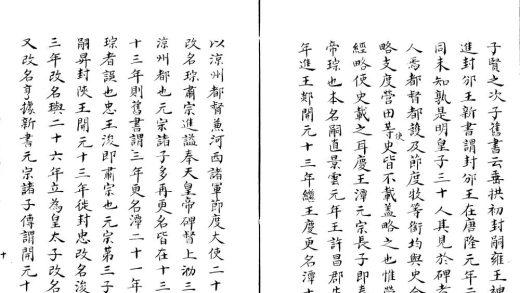 子賢之次子舊書云垂拱初封嗣雍王神
進封邠王新書謂封邠王在唐隆元年
同未知孰是明皇子三十人其見於碑者
人焉都督都護及節度等銜均與史合
略支度營田等使史皆不載蓋略之也惟營
經略使史載之耳慶王潭元宗長子即奉
帝琮也本名嗣直景雲元年王許昌郡
年進王郯開元十三年繼王慶更名潭十
以涼州都督兼河西諸軍節度大使二十
改名琮肅宗進謚奉天皇帝碑督上泐三
涼州都也元宗諸子多再更名皆在十三
十三年則舊書謂三年更名潭二十一年
琮者誤也忠王浚即肅宗也元宗第三子
嗣昇封陝王開元十三年徙封忠改名浚
三年改名璵二十六年立為皇太子改名
又改名亨據新書元宗諸子傳謂開元十
十